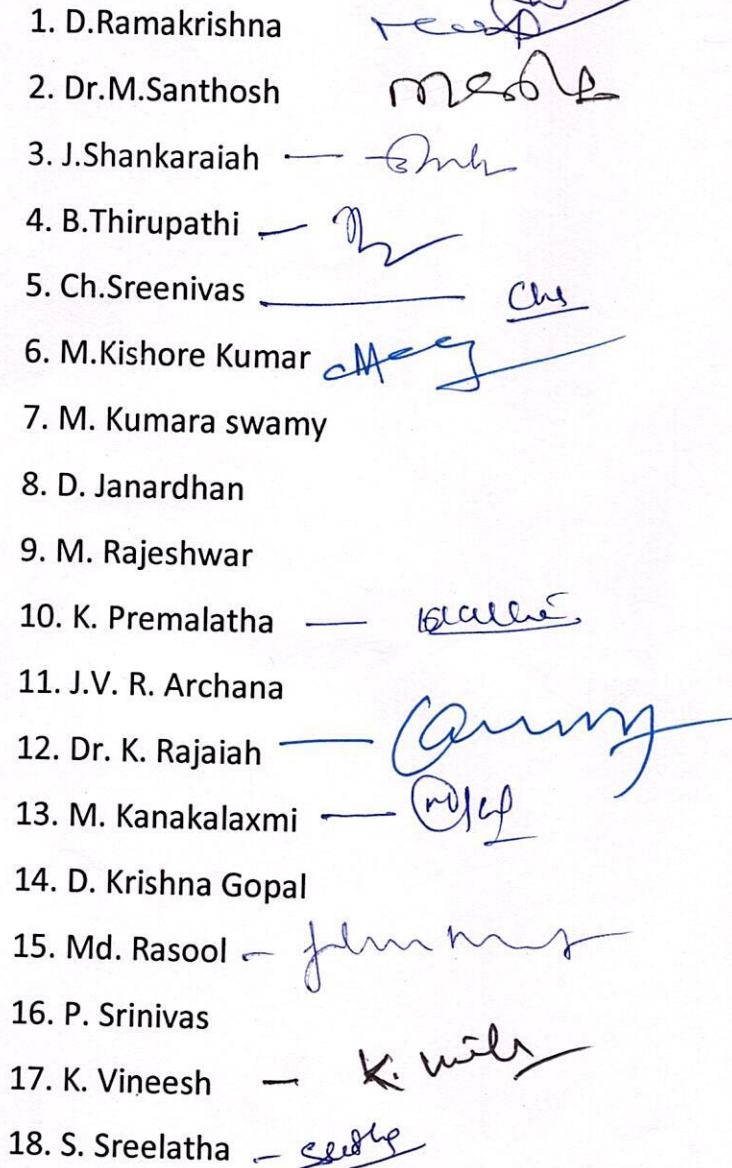 1. D.Ramakrishna
2. Dr.M.Santhosh
3. J.Shankaraiah
4. B.Thirupathi
5. Ch.Sreenivas
6. M.Kishore Kumar
7. M. Kumara swamy
8. D. Janardhan
9. M. Rajeshwar
10. K. Premalatha
11. J.V. R. Archana
12. Dr. K. Rajaiah
13. M. Kanakalaxmi
14. D. Krishna Gopal
15. Md. Rasool
16. P. Srinivas
17. K. Vineesh
18. S. Sreelatha